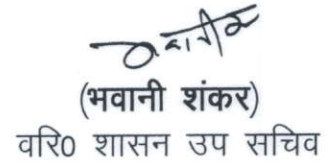 (भवानी शंकर)
वरि0 शासन उप सचिव